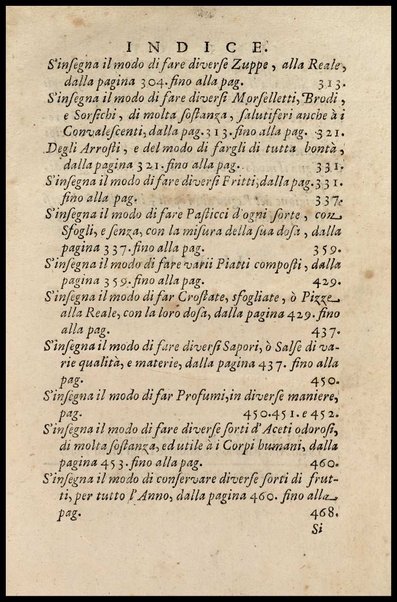 INDICE.
S'insegna il modo di fare diverse Zuppe, alla Reale,
dalla pagina 304. fino alla pag. 313.
S'insegna il modo di fare diversi Morselletti, Brodi,
e Sorsichi, di molta sostanza, salutiferi anche à i
Convalescenti, dalla pag. 313. fino alla pag. 321.
Degli Arrosti, e del modo di fargli di tutta bontà,
dalla pagina 321. fino alla pag. 331.
S'insegna il modo di fare diversi Fritti, dalla pag. 331.
fino alla pag. 337.
S'insegna il modo di fare Pasticci d'ogni sorte, con
Sfogli, e senza, con la misura della sua dosa, dalla
pagina 337. fino alla pag. 359.
S'insegna il modo di fare varii Piatti composti, dalla
pagina 359. fino alla pag. 429.
S'insegna il modo di far Crostate, sfogliate, ò Pizze
alla Reale, con la loro dosa, dalla pagina 429. fino
alla pag. 437.
S'insegna il modo di fare diversi Sapori, ò Salse di va-
rie qualità, e materie, dalla pagina 437. fino alla
pag. 450.
S'insegna il modo di far Profumi, in diverse maniere,
pag. 450. 451. e 452.
S'insegna il modo di fare diverse sorti d'Aceti odorosi,
di molta sostanza, ed utile à i Corpi humani, dalla
pagina 453. fino alla pag. 460.
S'insegna il modo di conservare diverse sorti di frut-
ti, per tutto l'Anno, dalla pagina 460. fino alla
pag. 468.
Si